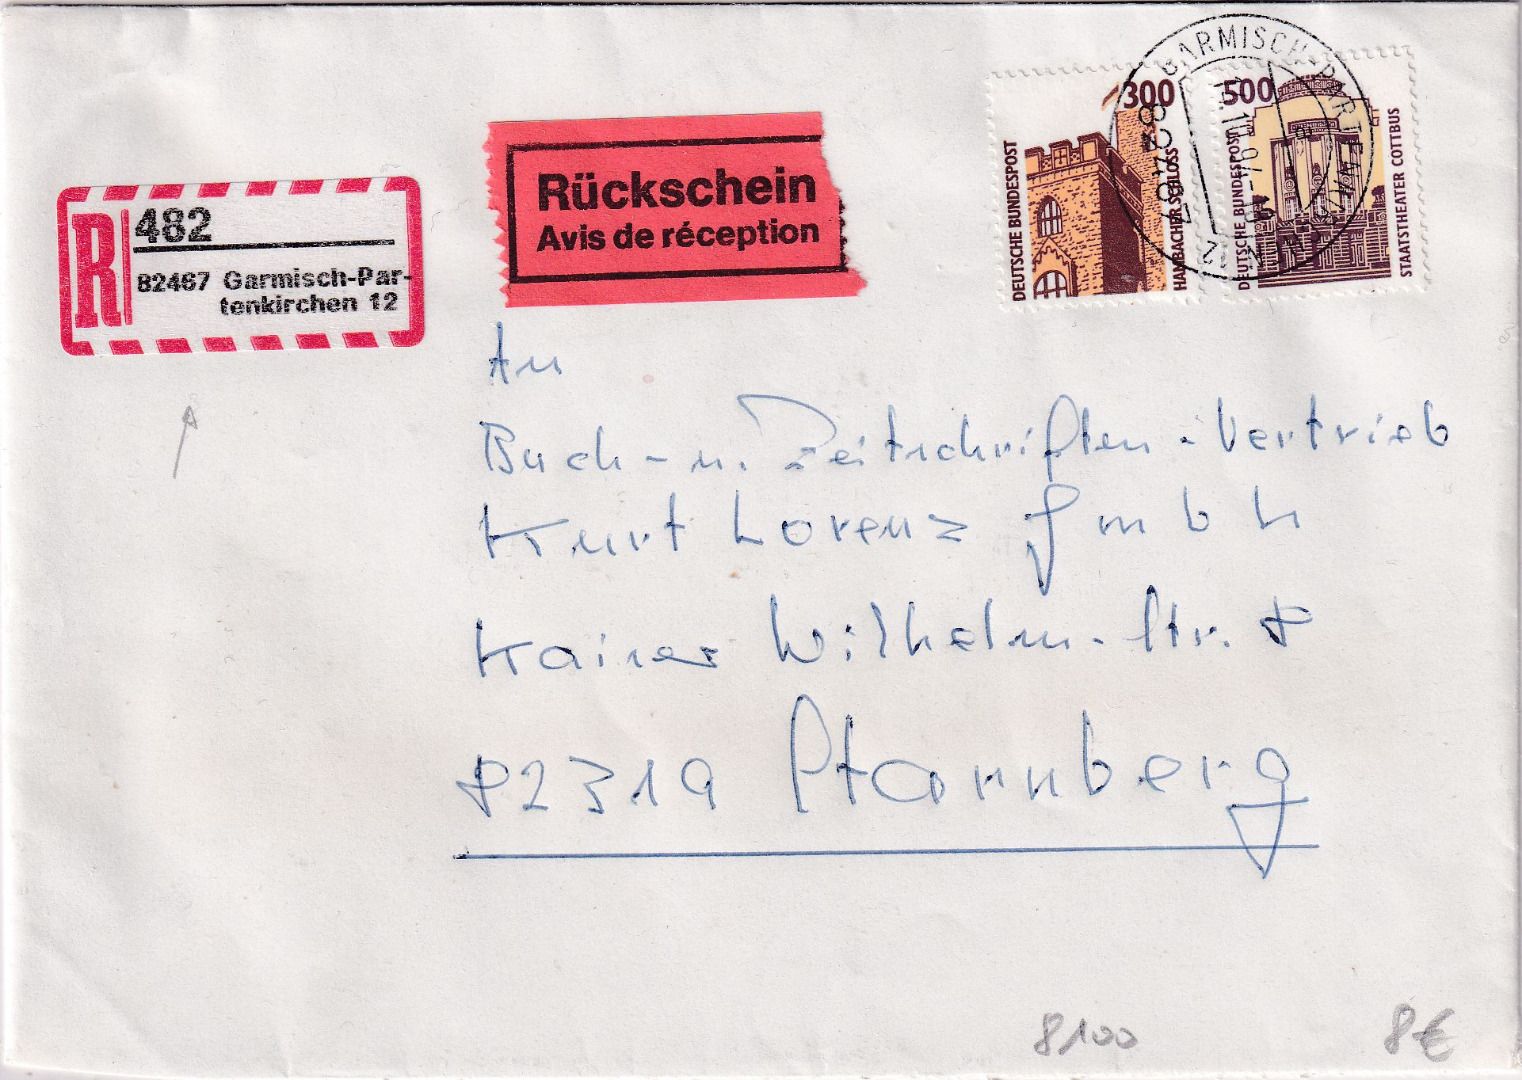 R 482
82467 Garmisch-Par-
tenkirchen 12
Rückschein
Avis de réception
DEUTSCHE BUNDESPOST
300
HAMBACHER SCHLOSS
DEUTSCHE BUNDESPOST
500
STAATSTHEATER COTTBUS
GARMISCH-PARTENKIRCHEN
82467
An
Buch- u. Zeitschriften-Vertrieb
Kurt Lorenz GmbH
Kaiser Wilhelm-Str. 8
82319 Starnberg
8100
8€